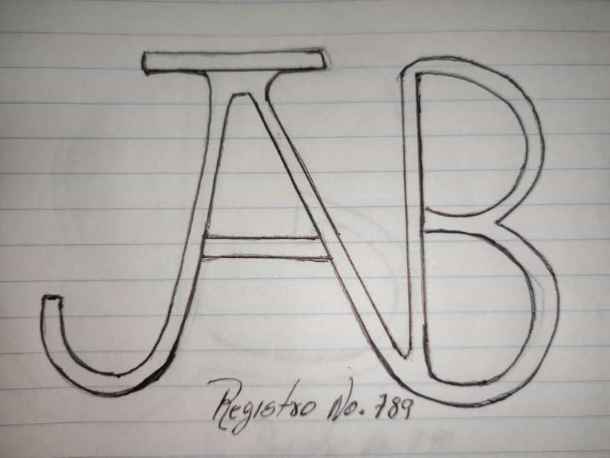 JAB
Registro No. 789